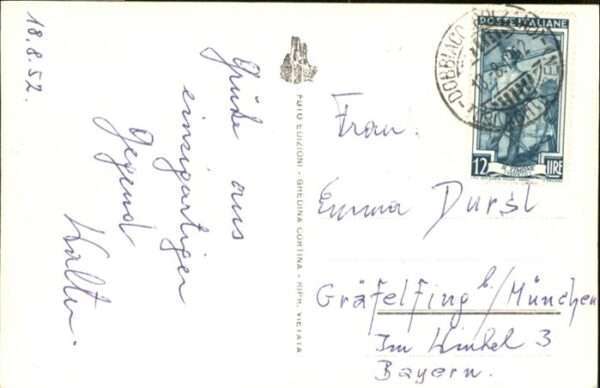 18.8.52.
Grüße aus
einzigartiger
Gegend
Walter.
FOTO EDIZIONI - GHEDINA CORTINA - RIPR. VIETATA
POSTE ITALIANE
12 LIRE
DOBBIACO
Frau
Emma Durst
Gräfelfing b/München
Im Winkel 3
Bayern.